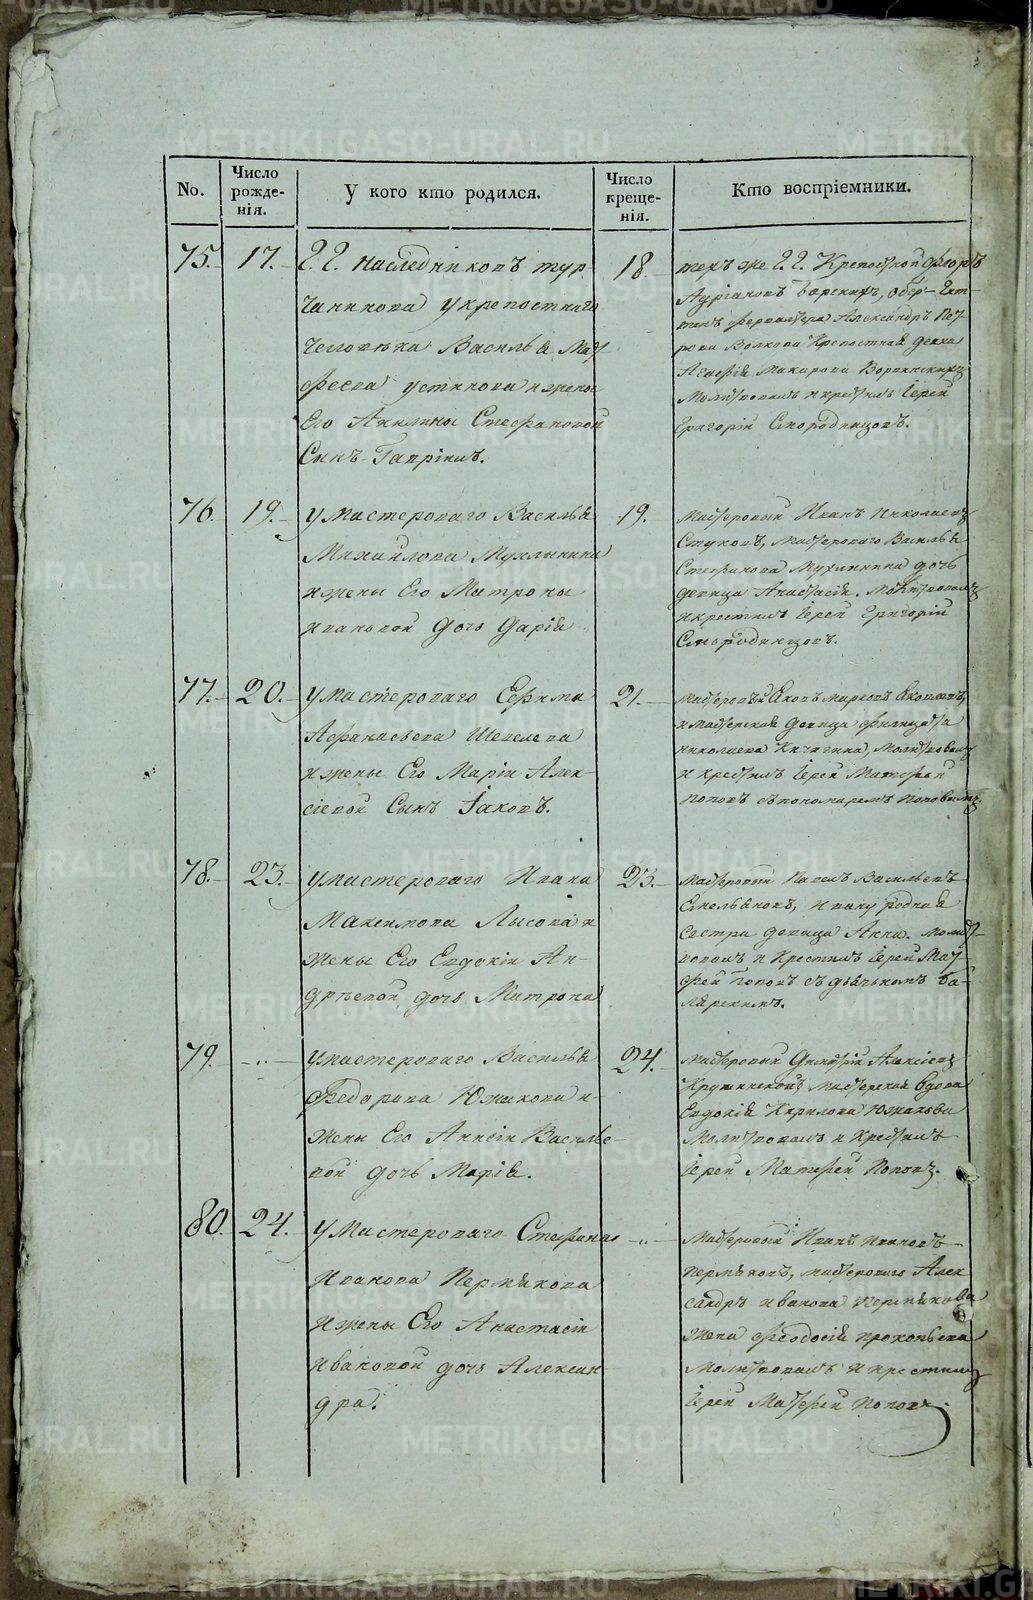 No.
Число рожде-нія.
У кого кто родился.
Число креще-нія.
Кто воспріемники.
75.
17.
Г. Г. наследниковъ тур-
чанинова у крепостнаго
человѣка Василья Мат
феева устинова и жены
Его Акилины Стефановой
Сынъ Гаврiилъ.
18.
техъ же Г. Г. Крепостной Феоръ
обер-
Александръ Пет-
рова Волкова Крепостная девка
Агафія Макарова
Молитвовалъ и крестилъ Іерей
Григорій Смородинцовъ.
76.
19.
у мастероваго Василья
Михайлова Мухлынина
и жены Его Матроны
Ивановой дочь Дарія
19.
Мастеровый Иванъ Николаевъ
Стуковъ, Мастероваго Василья
Стефанова Мухлынина дочь
девица Анастасія. Молитвовалъ
и крестилъ Іерей Григорій
Смородинцовъ.
77.
20.
у мастероваго Ефима
Афанасьева Шевелева
и жены Его Маріи Алек-
сіевой Сынъ Іаковъ.
21.
Мастеровый Яковъ
и Мастерская девица Фелицата
николаева Кичигина, Молитвовалъ
и крестилъ Іерей Матфей
поповъ съ пономаремъ поповымъ.
78.
23.
у мастероваго Ивана
Максимова Лысова и
жены Его Евдокіи Ан-
дреевой дочь Матрона
23.
Мастеровый Павелъ Васильевъ
Емельяновъ, Ивану родная
сестра девица Анна. Молит-
вовалъ и Крестилъ Іерей Мат-
фей Поповъ съ дьячькомъ Бо-
лярскимъ.
79.
-"-
у мастероваго Василья
Федорова Южакова и
жены Его Анисіи Василье-
вой дочь Марія.
24.
Мастеровый Димитрій Алексіевъ
Мастерская вдова
Евдокія Кирилова Южакова
Молитвовалъ и Крестилъ
Іерей Матфей Поповъ.
80.
24.
у Мастероваго Стефана
Иванова Пермякова
и жены Его Анастасіи
Ивановой дочь Алексан-
дра.
-"-
Мастеровый Иванъ Ивановъ
Пермяковъ, мастероваго Алек
сандръ Иванова Пермякова
жена Феодосія прокопьева
Молитвовалъ и крестилъ
Іерей Матфей Поповъ.